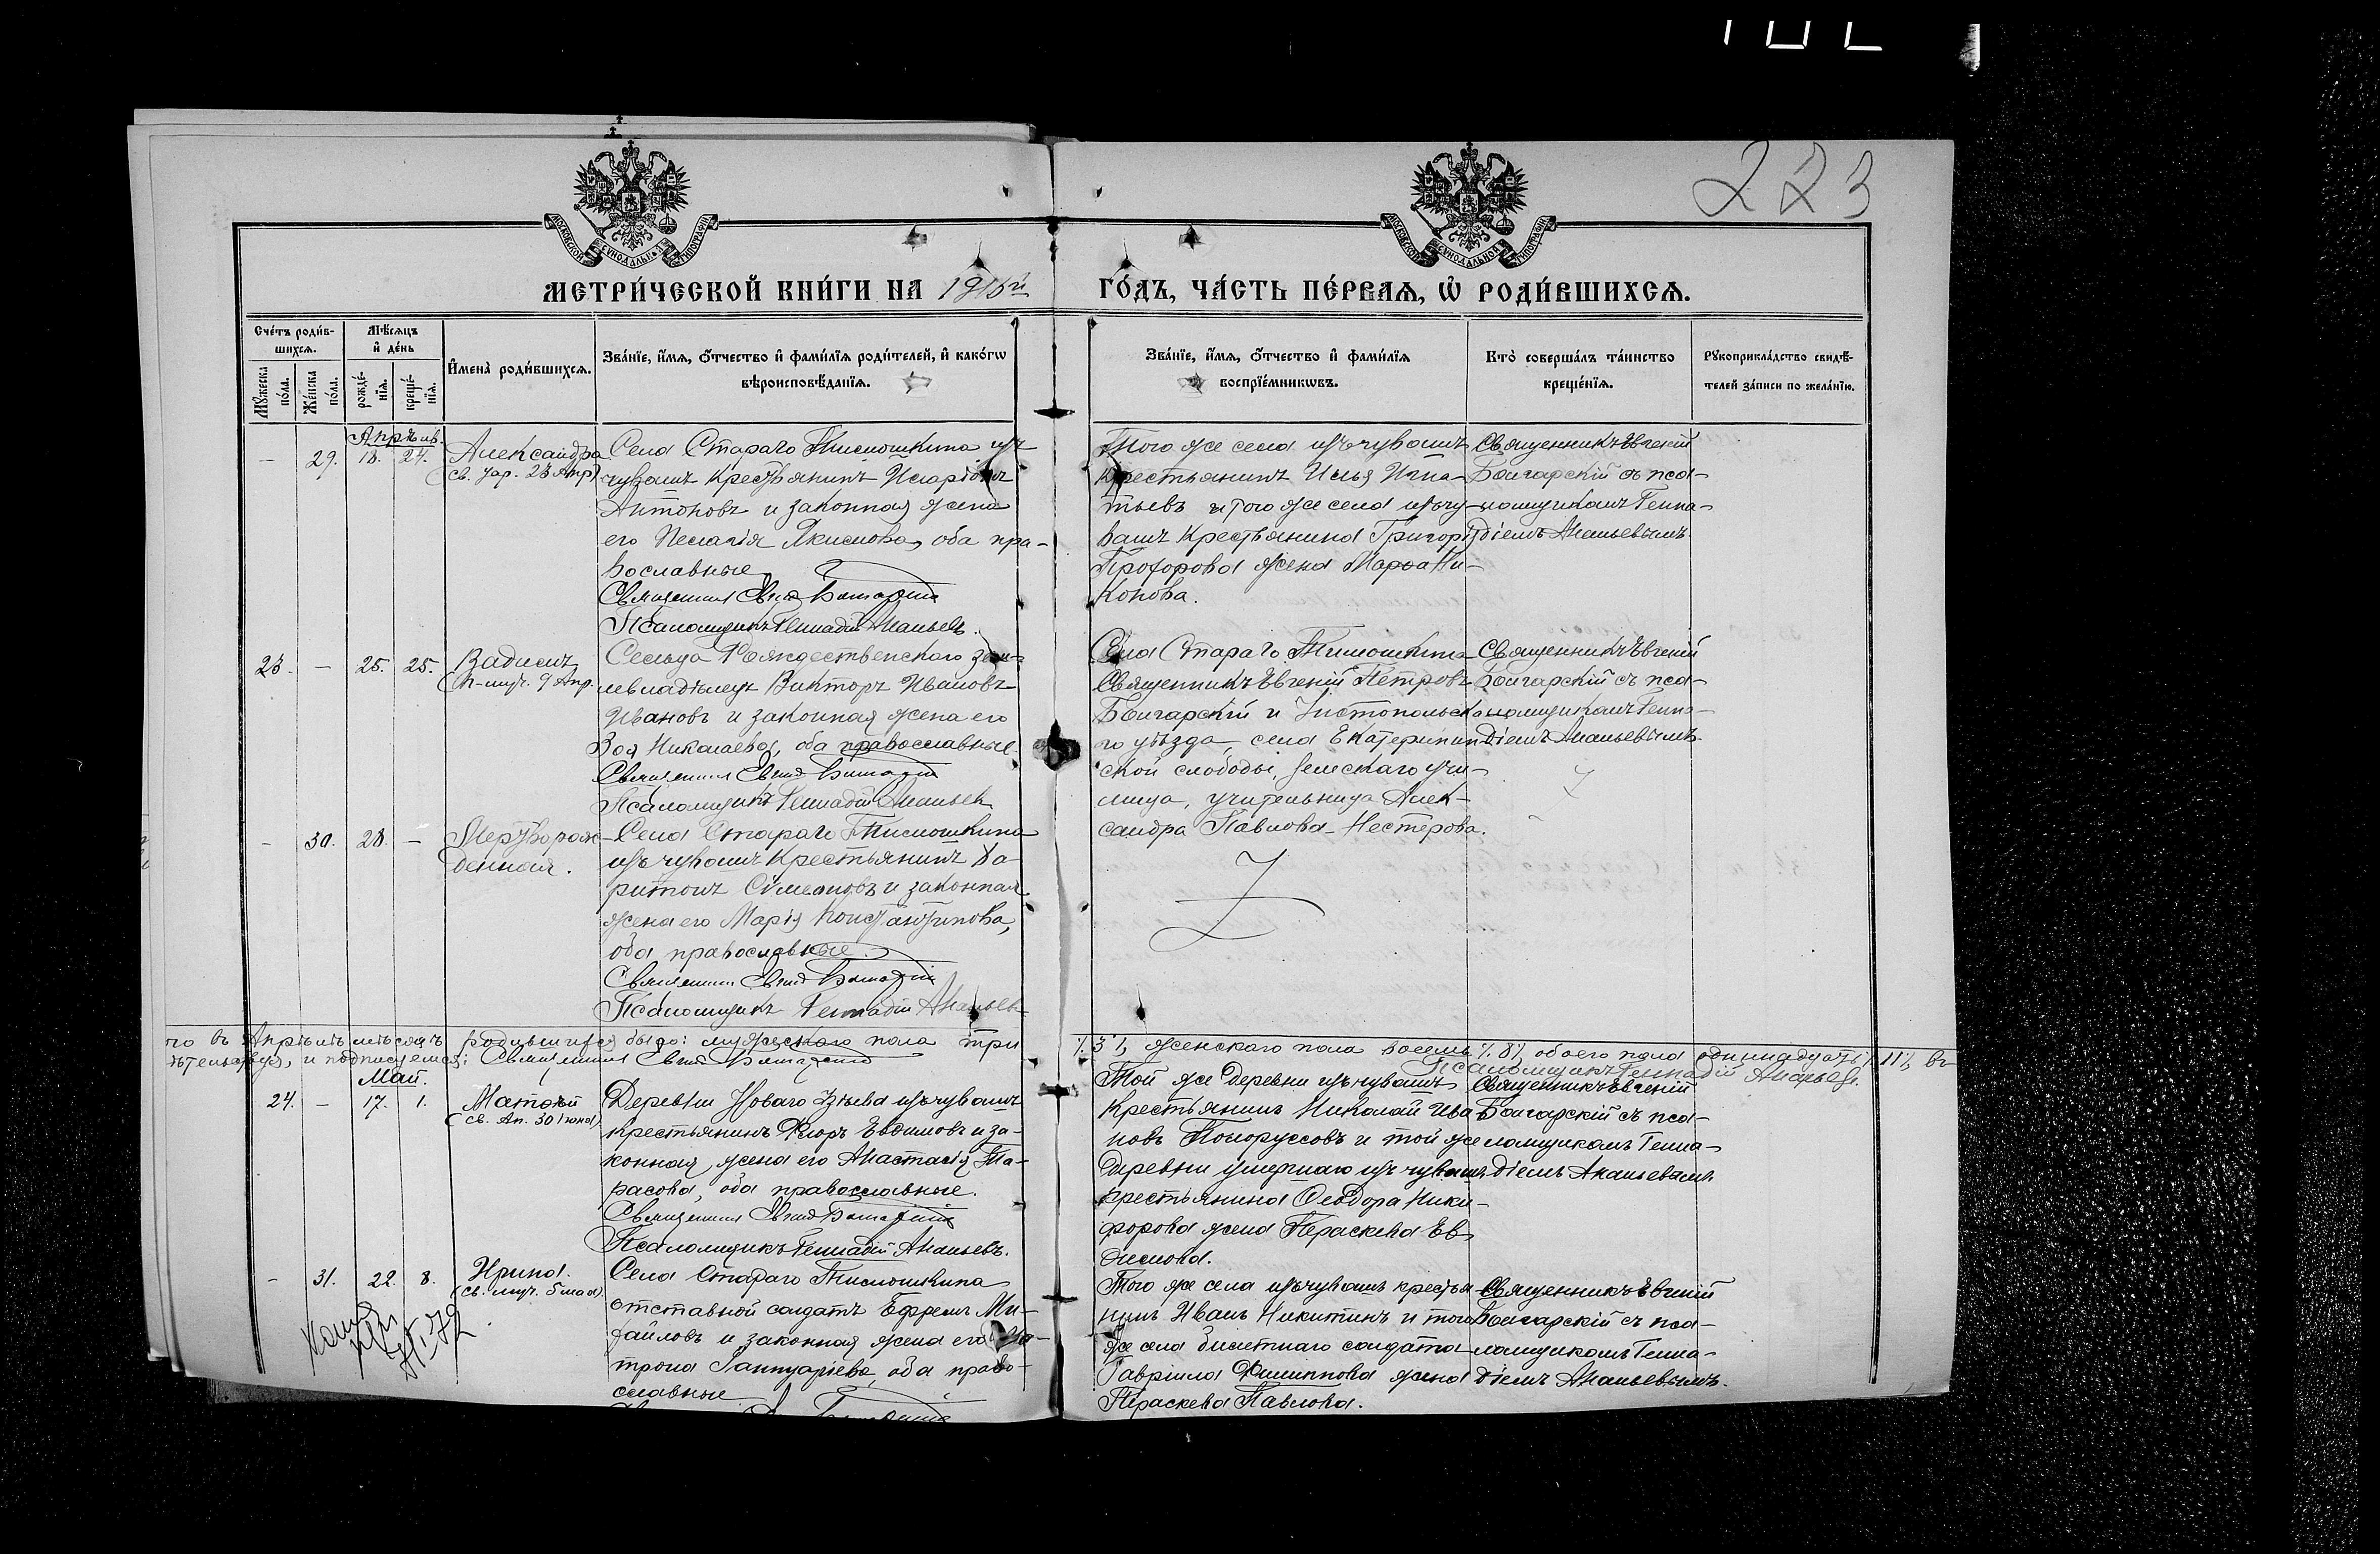 223
МОСКОВСКОЙ СѴНОДАЛЬНОЙ ТИПОГРАФІИ
МОСКОВСКОЙ СѴНОДАЛЬНОЙ ТИПОГРАФІИ
МЕТРИ́ЧЕСКОЙ КНИ́ГИ НА 1915й ГО́ДЪ, ЧА́СТЬ ПЕ́РВАѦ, Ѡ҆ РОДИ́ВШИХСѦ.
Сче́тъ роди́в-
шихсѧ.
Мꙋ́жеска по́ла.
Же́нска по́ла.
Мѣ́сѧцъ
и҆ де́нь
рожде́-
нїѧ.
креще́-
нїѧ.
И҆мена̀ роди́вшихсѧ.
Зва́нїе, и҆́мѧ, ѻ҆́тчество и҆ фами́лїѧ роди́телей, и҆ како́гѡ
вѣроисповѣ́данїѧ.
Зва́нїе, и҆́мѧ, ѻ҆́тчество и҆ фами́лїѧ
воспрїе́мникѡвъ.
Кто̀ соверша́лъ та́инство
креще́нїѧ.
Рꙋкоприкла́дство свидѣ́-
телей за́писи по жела́нїю.
Апрѣль.
– 29. 18. 24.
Александра
(св. 23 Апр)
Села Стараго Тимошкина изъ
чувашъ крестьянинъ Иларіонъ
Антоновъ и законная жена
его Пелагія Якимова, оба пра-
вославные
Священникъ Евгеній Болгарскій
Псаломщикъ Геннадій Ананьевъ.
Того же села изъ чувашъ
крестьянинъ Илья Игна-
тьевъ и того же села изъ чу-
вашъ крестьянина Григорія
Прохорова жена Марѳа Ни-
конова.
Священникъ Евгеній
Болгарскій съ пса-
ломщикомъ Генна-
діемъ Ананьевымъ.
23. – 25. 25.
Вадимъ
9 Апр.
Сельца Рождественскаго зем-
левладѣлецъ Викторъ Ивановъ
Ивановъ и законная жена его
Зоя Николаева, оба православные.
Священникъ Евгеній Болгарскій
Псаломщикъ Геннадій Ананьевъ
Села Стараго Тимошкина
Священникъ Евгеній Петровъ
Болгарскій и Чистопольска-
го уѣзда, села Екатеринин-
ской слободы, земскаго учи-
лища, учительница Алек-
сандра Павлова Нестерова.
Священникъ Евгеній
Болгарскій съ пса-
ломщикомъ Генна-
діемъ Ананьевымъ.
– 30. 28. –
Мертворож-
денная.
Села Стараго Тимошкина
изъ чувашъ крестьянинъ Ха-
ритонъ Симеоновъ и законная
жена его Марія Константинова,
оба православные.
Священникъ Евгеній Болгарскій
Псаломщикъ Геннадій Ананьевъ
го въ Апрѣлѣ мѣсяцѣ родившихся было: мужескаго пола три /.3./, женскаго пола восемь /.8./, обоего пола одиннадцать /.11./, въ
и подписуемся: Священникъ Евгеній Болгарскій
Псаломщикъ Геннадій Ананьевъ.
Май.
24. – 17. 1.
Матѳій
(св. Ап. 30 Іюня)
Деревни Новаго Узѣева изъ чувашъ
крестьянинъ Флоръ Евѳимовъ и за-
конная жена его Анастасія Та-
расова, оба православные.
Священникъ Евгеній Болгарскій
Псаломщикъ Геннадій Ананьевъ.
Той же деревни изъ чувашъ
крестьянинъ Николай Ива-
новъ Белоруссовъ и той же
деревни умершаго изъ чувашъ
крестьянина Ѳеодора Ники-
форова жена Параскева Ев-
ѳимова.
Священникъ Евгеній
Болгарскій съ пса-
ломщикомъ Генна-
діемъ Ананьевымъ.
– 31. 22. 8.
Ирина.
(св. муч. 5 мая)
Села Стараго Тимошкина
отставной солдатъ Ефремъ Ми-
хайловъ и законная жена его Ма-
трона Іаннуаріева, оба право-
славные
Того же села изъ чувашъ крестья-
нинъ Иванъ Никитинъ и того
же села билетнаго солдата
Гавріила Филиппова жена
Параскева Павлова.
Священникъ Евгеній
Болгарскій съ пса-
ломщикомъ Генна-
діемъ Ананьевымъ.